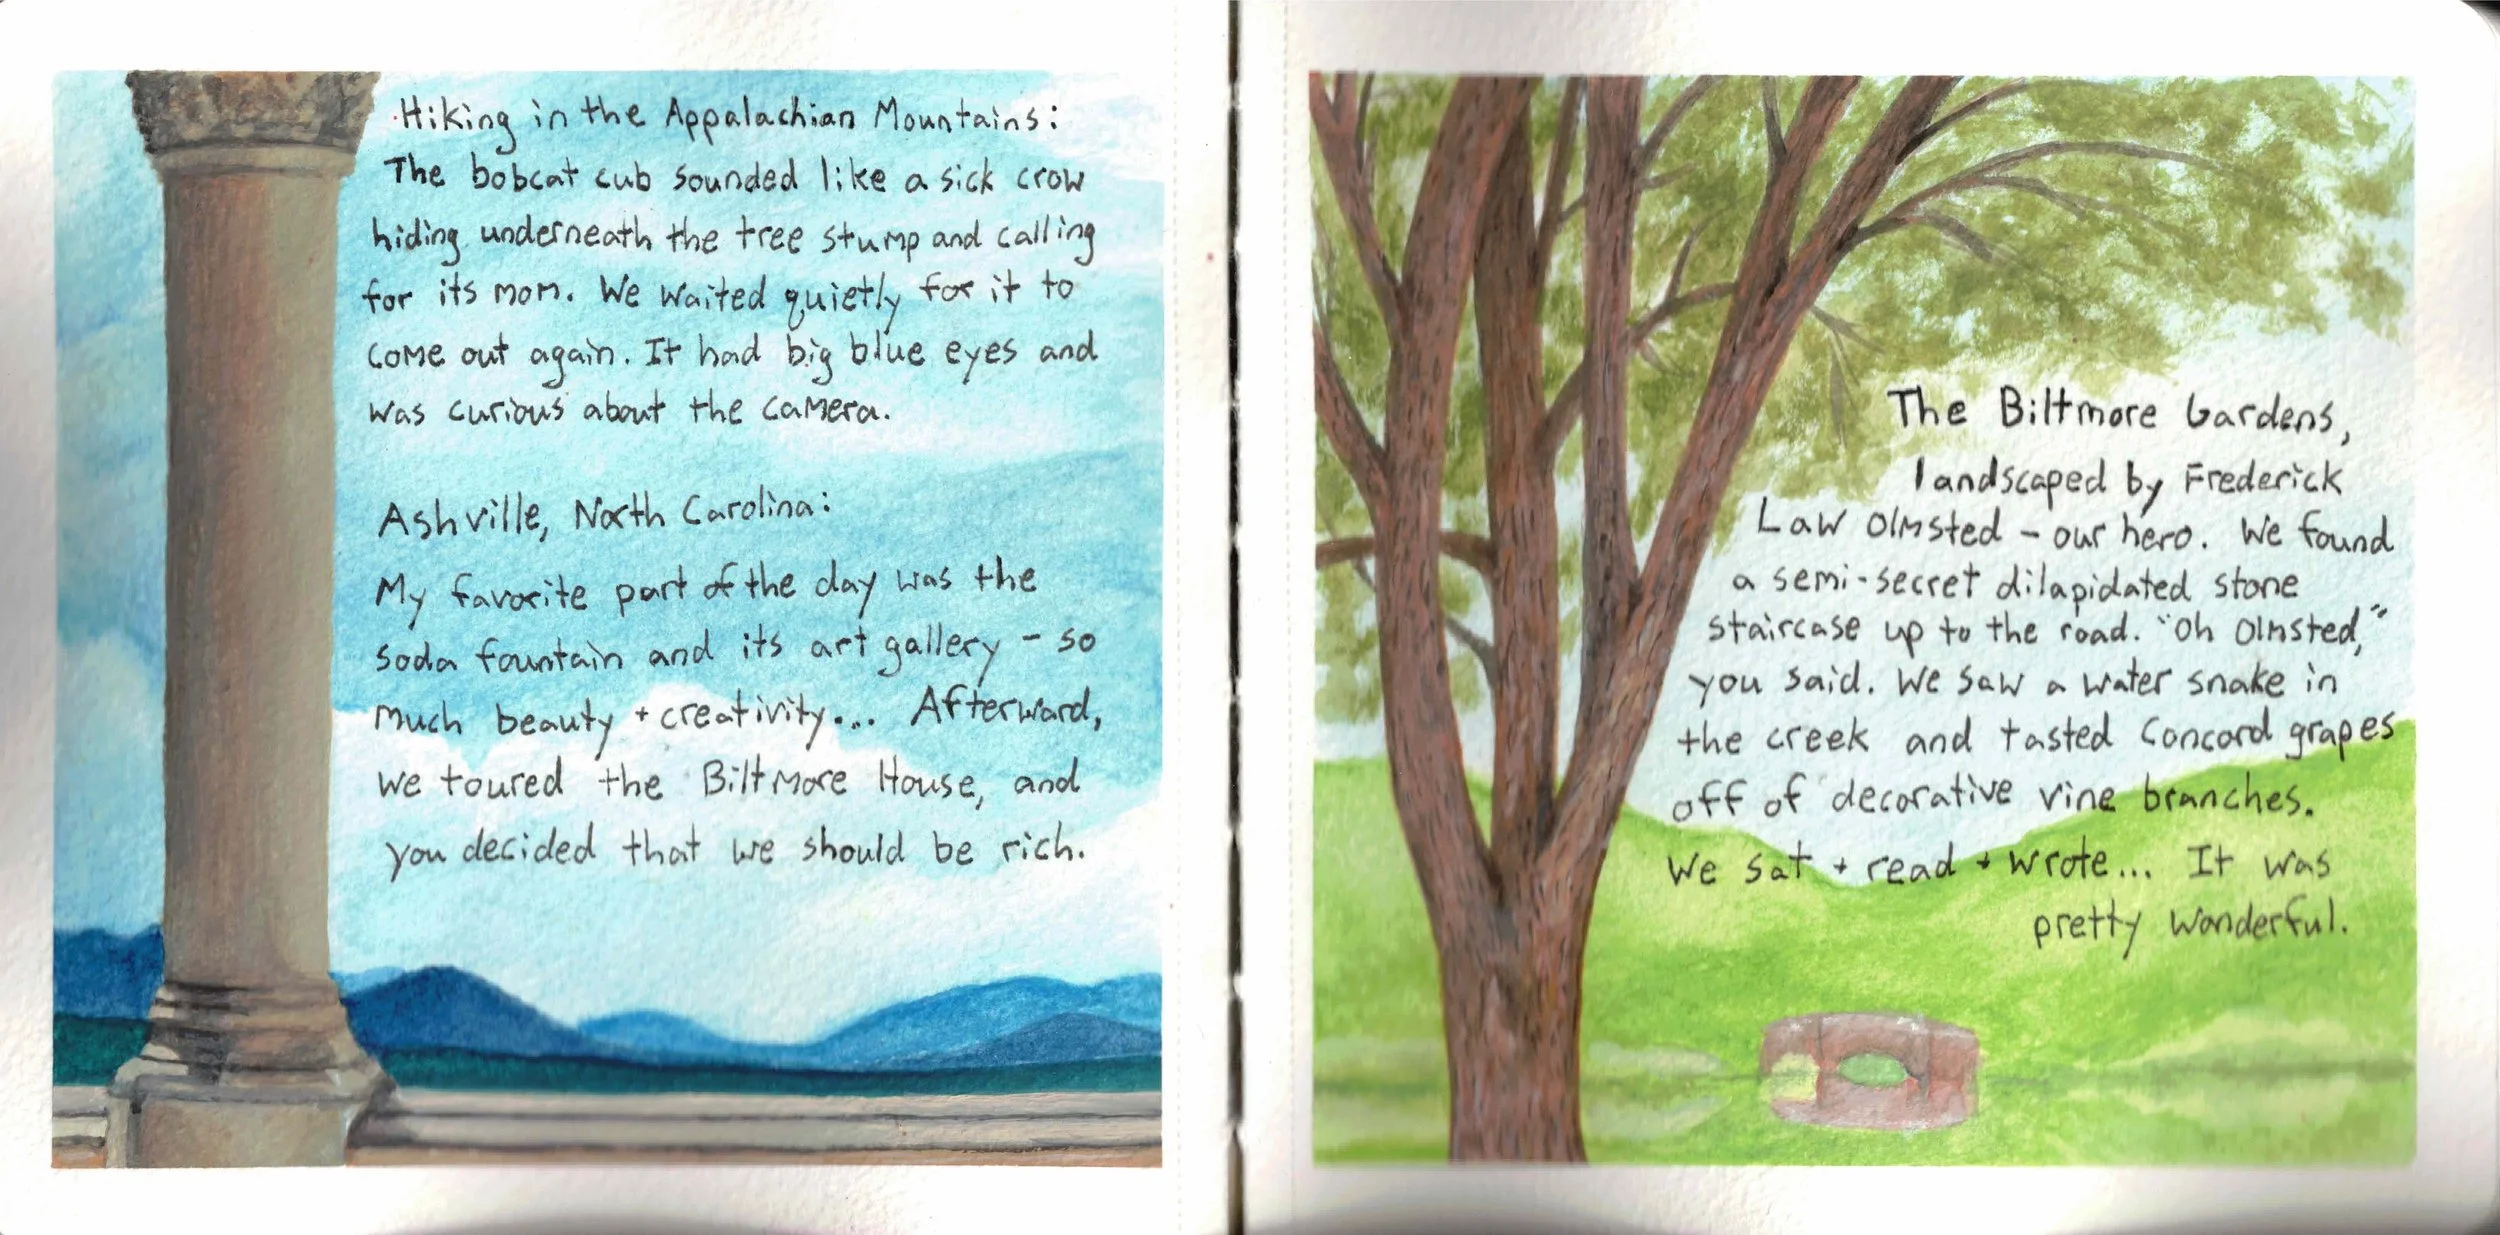 Hiking in the Appalachian Mountains:
The bobcat cub sounded like a sick crow
hiding underneath the tree stump and calling
for its mom. We waited quietly for it to
come out again. It had big blue eyes and
was curious about the camera.
Ashville, North Carolina:
My favorite part of the day was the
soda fountain and its art gallery - so
much beauty + creativity... Afterward,
we toured the Biltmore House, and
you decided that we should be rich.
The Biltmore Gardens,
landscaped by Frederick
Law Olmsted - our hero. We found
a semi-secret dilapidated stone
staircase up to the road. "Oh Olmsted,"
you said. We saw a water snake in
the creek and tasted Concord grapes
off of decorative vine branches.
We sat + read + wrote... It was
pretty wonderful.